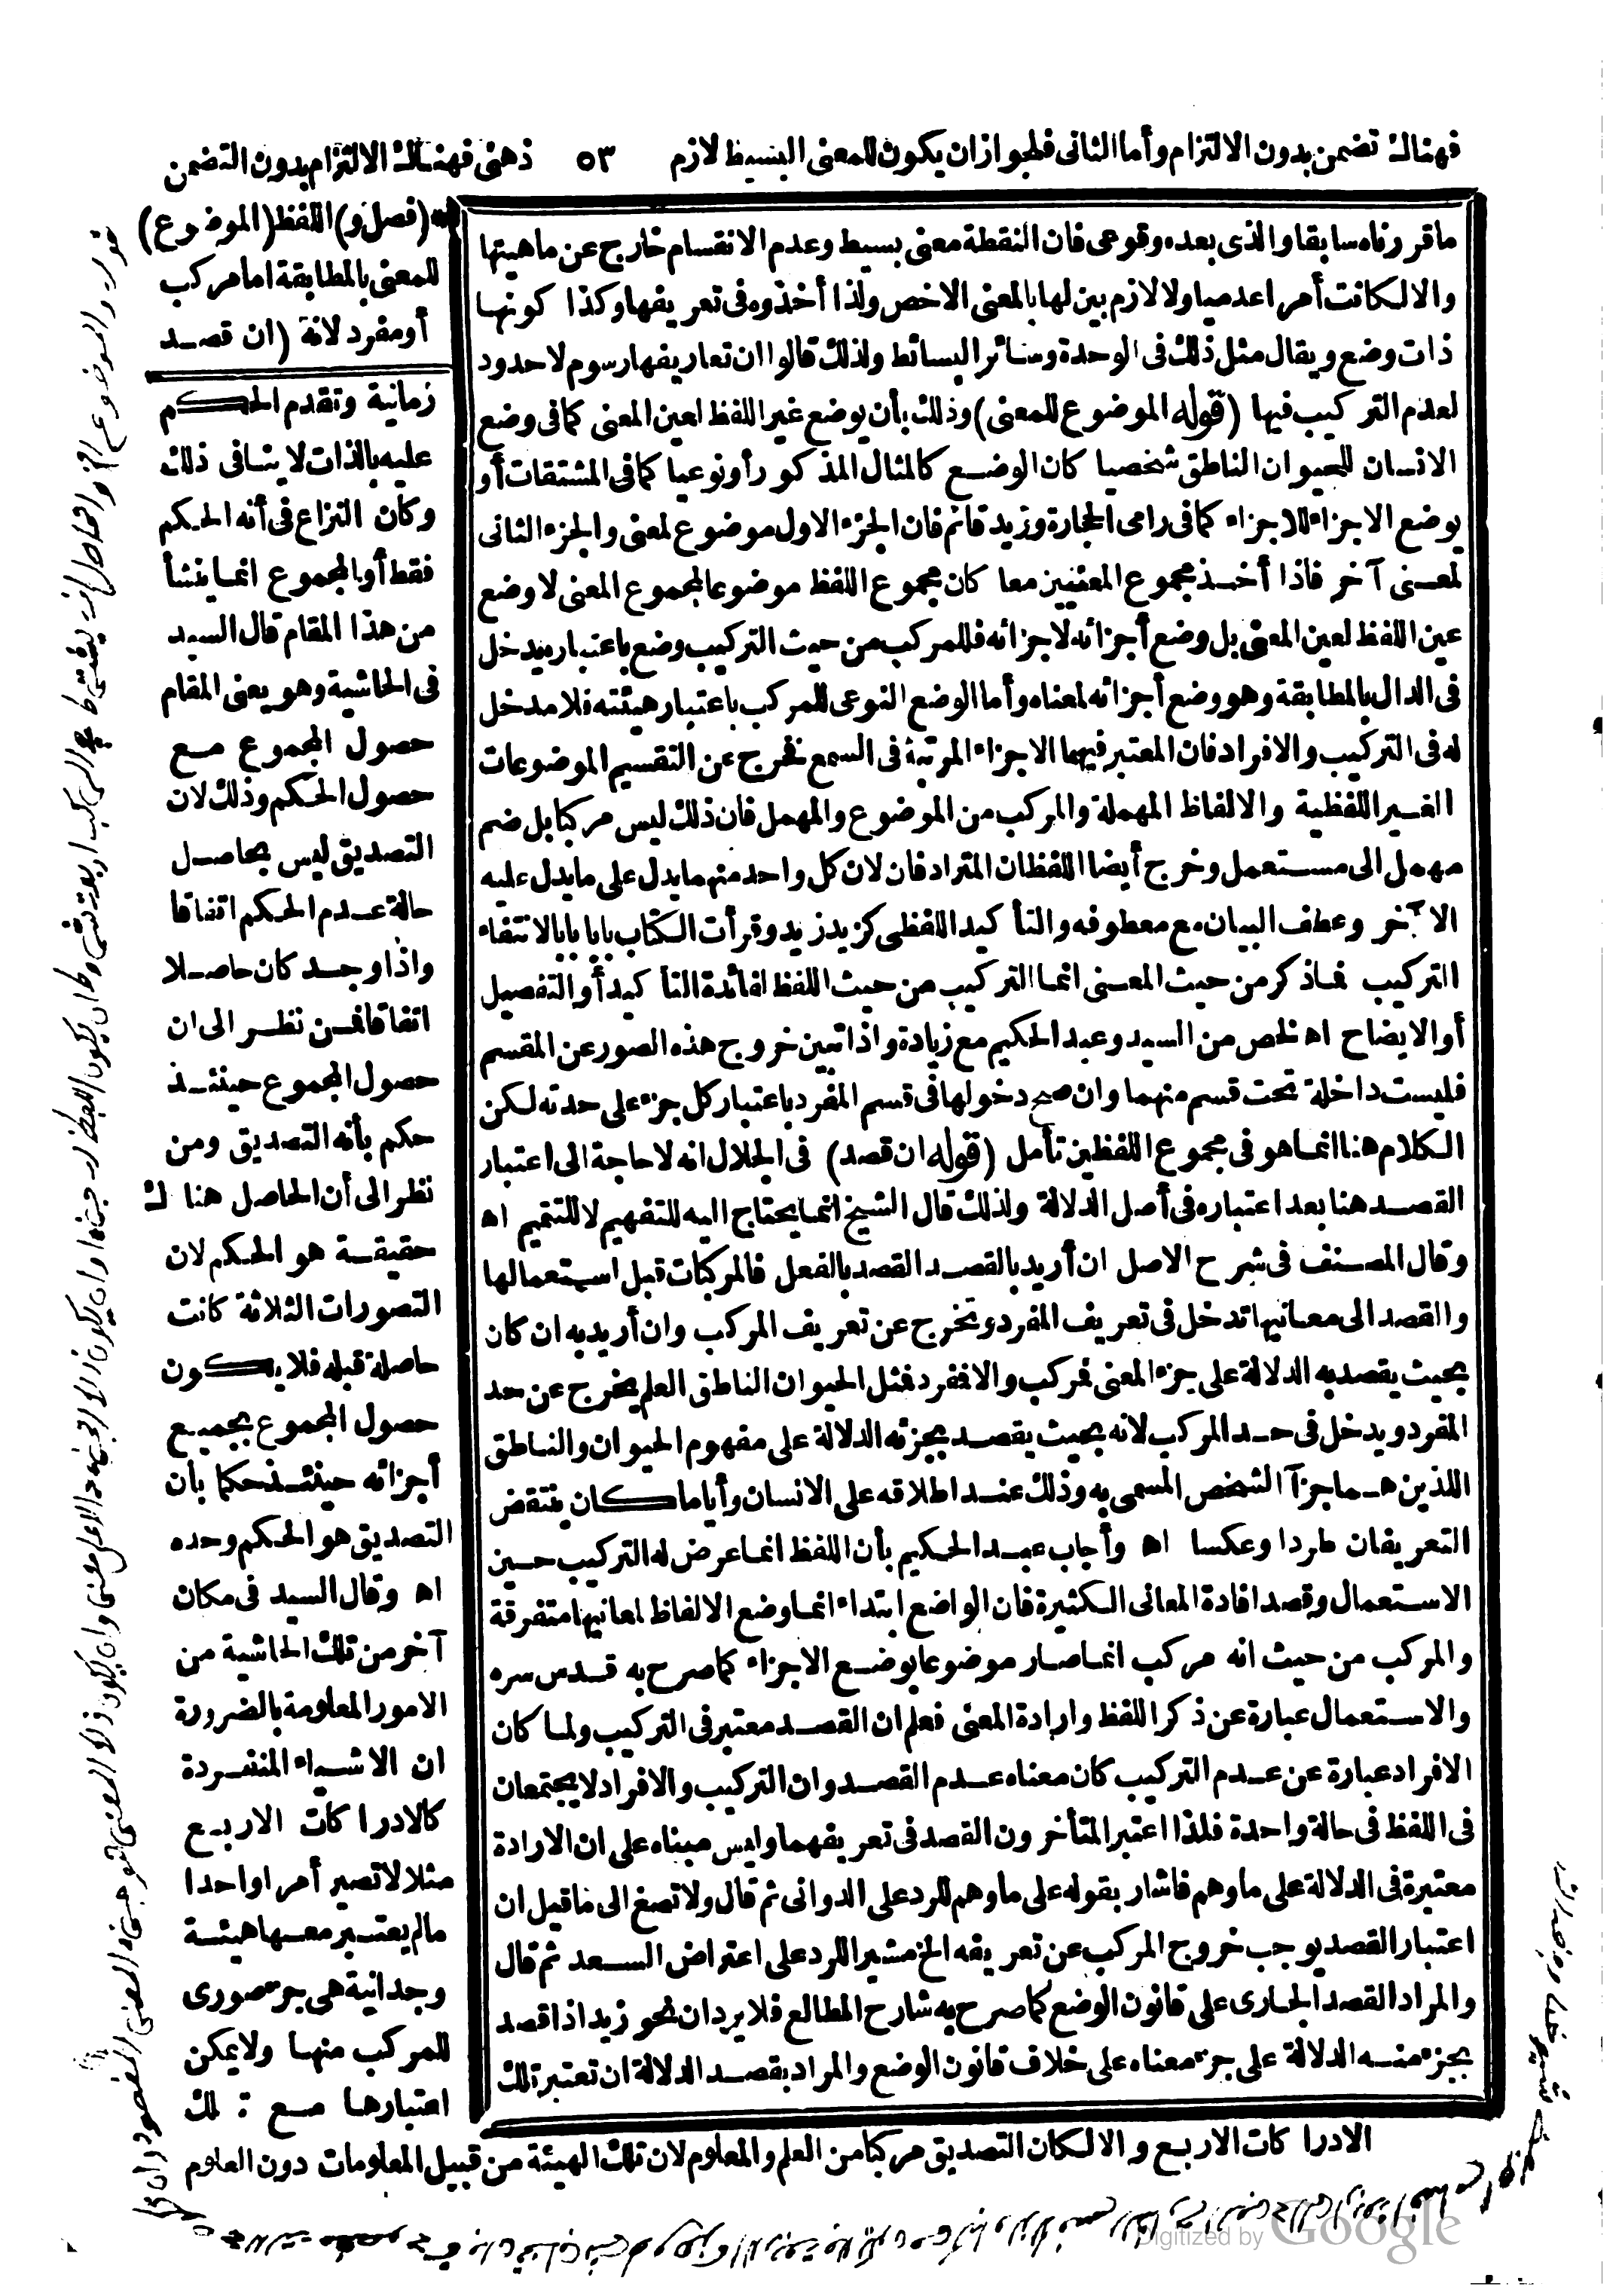 فهناك تضمن بدون الالتزام وأما الثانى فلجواز ان يكون للمعنى البسيط لازم ٥٣ ذهنى فهناك الالتزام بدون التضمن
(فصل و) اللفظ (الموضوع)
للمعنى بالمطابقة اما مركب
أو مفرد لانه (ان قصد
ما قررناه سابقا والذى بعده وقوعى فان النقطة معنى بسيط وعدم الانقسام خارج عن ماهيتها
والالكانت أمرا عدميا ولا لازم بين لها بالمعنى الاخص ولذا أخذوه فى تعريفها وكذا كونها
ذات وضع ويقال مثل ذلك فى الوحدة وسائر البسائط ولذلك قالوا ان تعاريفها رسوم لا حدود
لعدم التركيب فيها (قوله الموضوع للمعنى) وذلك بأن يوضع غير اللفظ لعين المعنى كما فى وضع
الانسان للحيوان الناطق شخصيا كان الوضع كالمثال المذكور أو نوعيا كما فى المشتقات أو
يوضع الاجزاء للاجزاء كما فى رامى الحجارة وزيد قائم فان الجزء الاول موضوع لمعنى والجزء الثانى
لمعنى آخر فاذا أخذ مجموع المعنيين معا كان مجموع اللفظ موضوعا لمجموع المعنى لا وضع
عين اللفظ لعين المعنى بل وضع أجزائه لاجزائه فللمركب من حيث التركيب وضع باعتباره يدخل
فى الدال بالمطابقة وهو وضع أجزائه لمعناه وأما الوضع النوعى للمركب باعتبار هيئته فلا مدخل
له فى التركيب والافراد فان المعتبر فيهما الاجزاء المرتبة فى السمع فخرج عن التقسيم الموضوعات
الغير اللفظية والالفاظ المهملة والمركب من الموضوع والمهمل فان ذلك ليس مركبا بل ضم
مهمل الى مستعمل وخرج أيضا اللفظان المترادفان لان كل واحد منهما يدل على ما يدل عليه
الآخر وعطف البيان مع معطوفه والتأكيد اللفظى كزيد زيد وقرأت الكتاب بابا بابا لانتفاء
التركيب فما ذكر من حيث المعنى انما التركيب من حيث اللفظ لفائدة التأكيد أو التفصيل
أو الايضاح اه ملخص من السيد وعبد الحكيم مع زيادة واذا تبين خروج هذه الصور عن المقسم
فليست داخلة تحت قسم منهما وان صح دخولها فى قسم المفرد باعتبار كل جزء على حدته لكن
الكلام هنا انما هو فى مجموع اللفظين تأمل (قوله ان قصد) فى الجلال انه لا حاجة الى اعتبار
القصد هنا بعد اعتباره فى أصل الدلالة ولذلك قال الشيخ انما يحتاج اليه للتفهيم لا للتتميم اه
وقال المصنف فى شرح الاصل ان أريد بالقصد القصد بالفعل فالمركبات قبل استعمالها
والقصد الى معانيها تدخل فى تعريف المفرد وتخرج عن تعريف المركب وان أريد به ان كان
بحيث يقصد به الدلالة على جزء المعنى فمركب والا فمفرد فمثل الحيوان الناطق العلم يخرج عن حد
المفرد ويدخل فى حد المركب لانه بحيث يقصد بجزئه الدلالة على مفهوم الحيوان والناطق
اللذين هما جزآ الشخص المسمى به وذلك عند اطلاقه على الانسان وأياما كان ينتقض
التعريفان طردا وعكسا اه وأجاب عبد الحكيم بأن اللفظ انما عرض له التركيب حين
الاستعمال وقصد افادة المعانى الكثيرة فان الواضع ابتداء انما وضع الالفاظ لمعانيها متفرقة
والمركب من حيث انه مركب انما صار موضوعا بوضع الاجزاء كما صرح به قدس سره
والاستعمال عبارة عن ذكر اللفظ وارادة المعنى فعلم ان القصد معتبر فى التركيب ولما كان
الافراد عبارة عن عدم التركيب كان معناه عدم القصد وان التركيب والافراد لا يجتمعان
فى اللفظ فى حالة واحدة فلذا اعتبر المتأخرون القصد فى تعريفهما وليس مبناه على ان الارادة
معتبرة فى الدلالة على ما وهم فاشار بقوله على ما وهم للرد على الدوانى ثم قال ولا تصغ الى ما قيل ان
اعتبار القصد يوجب خروج المركب عن تعريفه الخ مشير اللرد على اعتراض السعد ثم قال
والمراد القصد الجارى على قانون الوضع كما صرح به شارح المطالع فلا يرد ان نحو زيد اذا قصد
بجزء منه الدلالة على جزء معناه على خلاف قانون الوضع والمراد بقصد الدلالة ان تعتبر تلك
زمانية وتقدم الحكم
عليه بالذات لا ينافى ذلك
وكان النزاع فى أنه الحكم
فقط أو المجموع انما ينشأ
من هذا المقام قال السيد
فى الحاشية وهو يعنى المقام
حصول المجموع مع
حصول الحكم وذلك لان
التصديق ليس بحاصل
حالة عدم الحكم اتفاقا
واذا وجد كان حاصلا
اتفاقا فمن نظر الى ان
حصول المجموع حينئذ
حكم بأنه التصديق ومن
نظر الى أن الحاصل هنا لك
حقيقة هو الحكم لان
التصورات الثلاثة كانت
حاصلة قبله فلا يكون
حصول المجموع بجميع
أجزائه حينئذ حكما بأن
التصديق هو الحكم وحده
اه وقال السيد فى مكان
آخر من تلك الحاشية من
الامور المعلومة بالضرورة
ان الاشياء المنفردة
كالادراكات الاربع
مثلا لا تصير أمرا واحدا
ما لم يعتبر معها هيئة
وجدانية هى جزء صورى
للمركب منها ولا يمكن
اعتبارها مع تلك
الادراكات الاربع والالكان التصديق مركبا من العلم والمعلوم لان تلك الهيئة من قبيل المعلومات دون العلوم
Digitized by Google